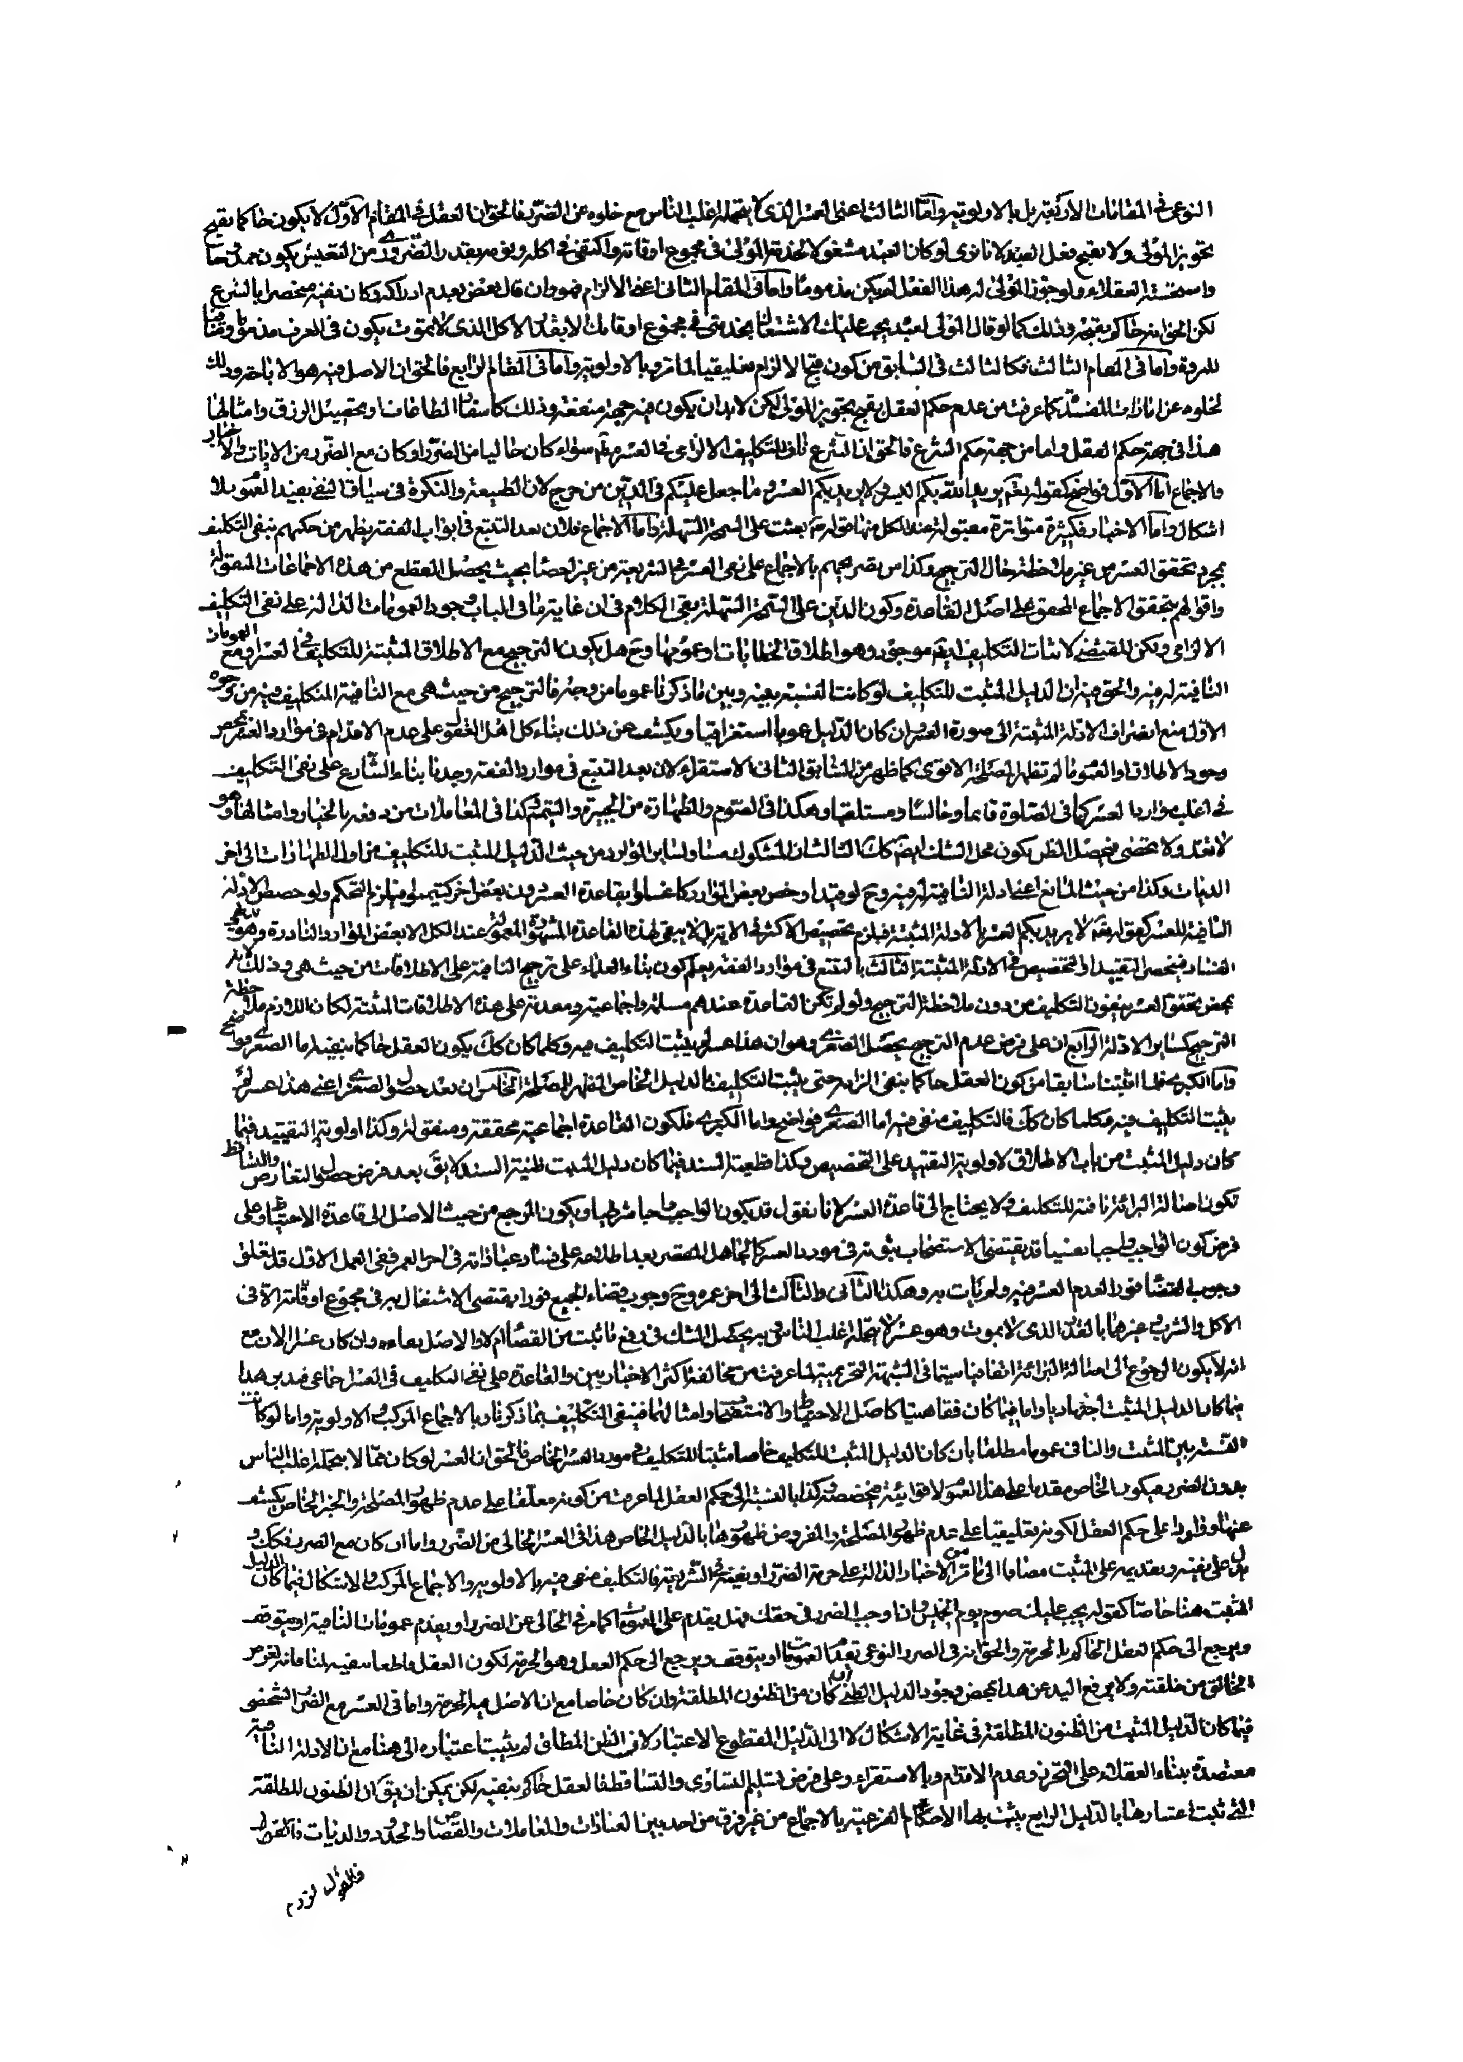 النوعى فى المقامات الاربعة بل بالاولوية واما الثالث اعنى العسر الذى لا يتحمله اغلب الناس مع خلوه عن الضرر فالحق ان العقل فى المقام الاول لا يكون حاكما بقبح
تجويز المولى ولا بقبح فعل العبد لانا نرى لو كان العبد مشغولا بخدمة المولى فى مجموع اوقاته واكتفى فى اكله ونومه بقدر الضرورى من التعيش يكون
واستحسنه العقلاء ولو جوز المولى له هذا الفعل لم يكن مذموما واما فى المقام الثانى اعنى الالزام فهو وان قال بعض بعدم ادراكه وكان نفيه منحصرا بالشرع
لكن الحق انه حاكم بقبحه وذلك كما لو قال المولى لعبده يجب عليك الاشتغال بخدمتى فى مجموع اوقاتك الا بقدر الاكل الذى لا تموت يكون فى العرف مذموما
واما فى المقام الثالث فكالثالث فى السابق من كون قبح الالزام تعليقيا لما مر وبالاولوية واما فى المقام الرابع فالحق ان الاصل فيه هو الاباحة وذلك
لخلوه عن امارات المفسدة كما عرفت من عدم حكم العقل بقبح تجويز المولى لكن لابد ان يكون فيه جهة منفعة وذلك كاسفار الطاعات او تحصيل الرزق وامثالها
هذا فى جهة حكم العقل واما من جهة حكم الشرع فالحق ان الشرع ناف للتكليف الالزامى فى العسر مط سواء كان خاليا من الضرر او كان مع الضرر من الايات والاخبار
والاجماع اما الاول فواضح كقوله تعم يريد الله بكم اليسر ولا يريد بكم العسر وما جعل عليكم فى الدين من حرج لان الطبيعة والنكرة فى سياق النفى يفيد العموم بلا
اشكال واما الاخبار فكثيرة متواترة مقبولة عند الكل منها قوله بعثت على السمحة السهلة واما الاجماع فلان بعد التتبع فى ابواب الفقه يظهر من حكمهم بنفى التكليف
بمجرد تحقق العسر من غير ملاحظة حال الترجيح وكذا من تصريحهم بالاجماع على نفى العسر فى الشريعة من غير احصاء بحيث يحصل القطع من هذه الاجماعات المنقولة
واقوالهم بتحقق الاجماع المحقق على اصل القاعدة وكون الدين على السمحة السهلة بقى الكلام فى ان غاية ما فى الباب وجود العمومات الدالة على نفى التكليف
الالزامى ولكن المقتضى لاثبات التكليف ايضا موجود وهو اطلاق الخطابات او عمومها وح هل يكون الترجيح مع الاطلاق المثبتة للتكليف فى العسر او مع العمومات
النافية له فيه والحق فيه ان الدليل المثبت للتكليف لو كانت النسبة بينه وبين ما ذكرنا عموما من وجه فالترجيح من حيث هى مع النافية للتكليف فيه من وجوه
الاول منع انصراف الادلة المثبتة الى صورة العسر وان كان الدليل عموما استغراقيا ويكشف عن ذلك بناء كل اهل العقول على عدم الاقدام فى موارد العسر بمحض
وجود الاطلاق او العموم ما لم تظهر المصلحة الاقوى كما ظهر من السابق الثانى الاستقراء لان بعد التتبع فى موارد الفقه وجدنا بناء الشارع على نفى التكليف
فى اغلب موارد العسر كما فى الصلوة قائما وجالسا ومستلقيا وهكذا فى الصوم والطهارة من الجبيرة والتيمم وكذا فى المعاملات من دفعه بالخيار وامثالها وهو
لا تعد ولا تحصى فيحصل الظن بكون محل الشك ايضا كك الثالث ان المشكوك مساو لسائر الموارد من حيث الدليل المثبت للتكليف من اول الطهارات الى اخر
الديات وكذا من حيث المانع اعنى ادلة النافية له فيه وح لو قيد او خص بعض الموارد كاغسلوا بقاعدة العسر دون بعض اخر كتيمموا فيلزم التحكم ولو خصص الادلة
النافية للعسر كقوله تعم لا يريد بكم العسر بالادلة المثبتة فيلزم تخصيص الاكثر فى الاية بل لا يبقى لهذه القاعدة المشهورة المعمولة عند الكل الا بعض الموارد النادرة وهو بديهى
الفساد فينحصر التقييد او التخصيص فى الادلة المثبتة الثالث بالتتبع فى موارد الفقه يعلم كون بناء العلماء على ترجيح النافية على الاطلاقات من حيث هى وذلك لانه
بمحض تحقق العسر ينفون التكليف من دون ملاحظة الترجيح ولو لم تكن القاعدة عندهم مسلمة واجماعية ومقدمة على هذه الاطلاقات المثبتة لكان اللازم ملاحظة
الترجيح كسائر الادلة الرابع ان على فرض عدم الترجيح يحصل الصغرى وهو ان هذا عسر لم يثبت التكليف فيه وكلما كان كك يكون العقل حاكما بنفيه اما الصغرى فواضح
واما الكبرى فلما اثبتنا سابقا من كون العقل حاكما بنفى الزامه حتى يثبت التكليف بالدليل الخاص المظهر للمصلحة الخامس ان بعد حصول الصغرى اعنى هذا عسر لم
يثبت التكليف فيه وكلما كان كك فالتكليف منفى فيه اما الصغرى فواضح واما الكبرى فلكون القاعدة اجماعية محققة ومنقولة وكذا اولوية التقييد فيما
كان دليل المثبت من باب الاطلاق لاولوية التقييد على التخصيص وكذا قطعية السند فيما كان دليل المثبت ظنية السند لا يق بعد فرض حصول التعارض والتساقط
تكون اصالة البرائة نافية للتكليف ولا يحتاج الى قاعدة العسر لانا نقول قد يكون الواجب واجبا شرطيا ويكون المرجع من حيث الاصل الى قاعدة الاحتياط وعلى
فرض كون الواجب واجبا نفسيا قد يقتضى الاستصحاب ثبوته فى مورد العسر كالجاهل المقصر بعد اطلاعه على فساد عباداته فى اخر العمر ففى العمل الاول قد تعلق
وجوب القضاء فورا لعدم العسر فيه ولم يات به وهكذا الثانى والثالث الى اخر عمره وح وجوب قضاء الجميع فورا يقتضى الاشتغال به فى مجموع اوقاته الا فى
الاكل والشرب وغيرها بالقدر الذى لا يموت وهو عسر لا يتحمله اغلب الناس فبه يحصل الشك فى رفع ما ثبت من القضاء ام لا والاصل بقاءه وان كان عسرا الان مع
انه لا يكون الرجوع الى اصالة البرائة اتفاقيا سيما فى الشبهة التحريمية لما عرفت من مخالفة اكثر الاخباريين والقاعدة على نفى التكليف فى العسر اجماعى
فيما كان الدليل المثبت اجتهاديا واما فيما كان فقاهتيا كاصل الاحتياط والاستصحاب وامثالهما فينفى التكليف بما ذكرنا وبالاجماع المركب والاولوية واما لو كانت
النسبة بين المثبت والنافى عموما مطلقا بان كان الدليل المثبت للتكليف خاصا مثبتا للتكليف فى مورد العسر الخاص فالحق ان العسر لو كان مما لا يتحمله اغلب الناس
بدون الضرر فيكون الخاص مقدما على هذا العموم لاقوائيته مخصصته وكذا بالنسبة الى حكم العقل لما عرفت من كونه معلقا على عدم ظهور المصلحة والخبر الخاص يكشف
عنها وواردا على حكم العقل لكونه تعليقيا على عدم ظهور المصلحة والمفروض ظهورها بالدليل الخاص هذا فى العسر الخالى من الضرر واما ان كان مع الضرر فكك
على نفيه وتقديمه على المثبت مضافا الى ما مر من الاخبار الدالة على حرمة الضرر او نفيه فى الشريعة فالتكليف منفى فيه بالاولوية والاجماع المركب والاشكال فيما كان الدليل
المثبت هنا خاصا كقوله يجب عليك صوم يوم الخميس وان اوجب الضرر فى حقك فهل يقدم على العموم كما مر فى الخالى عن الضرر او يقدم عمومات النافية او يتوقف
ويرجع الى حكم العقل الحاكم بالحرمة والحق انه فى الضرر النوعى تقدم العمومات او يتوقف ويرجع الى حكم العقل وهو الحرمة لكون العقل قاطعا
الخالق من خلقته ولا يرفع اليد عن هذا بمحض وجود الدليل الظنى ان كان من الظنون المطلقة وان كان خاصا مع ان الاصل فيه الحرمة واما فى العسر مع الضرر الشخصى
فيما كان الدليل المثبت من الظنون المطلقة فى غاية الاشكال لا الى الدليل المقطوع الاعتبار لان الظن المطلق لم يثبت اعتباره الى هنا مع ان الادلة النافية
معتضدة ببناء العقلاء على التحرز وعدم الاقدام وبالاستقراء وعلى فرض تسليم التساوى والتساقط فالعقل حاكم بنفيه لكن يمكن ان يق ان الظنون المطلقة
التى ثبت اعتبارها بالدليل الرابع يثبت بها الاحكام الفرعية بالاجماع من غير فرق من احد بين العبادات والمعاملات والقصاص والحدود والديات فالقول
فالقول